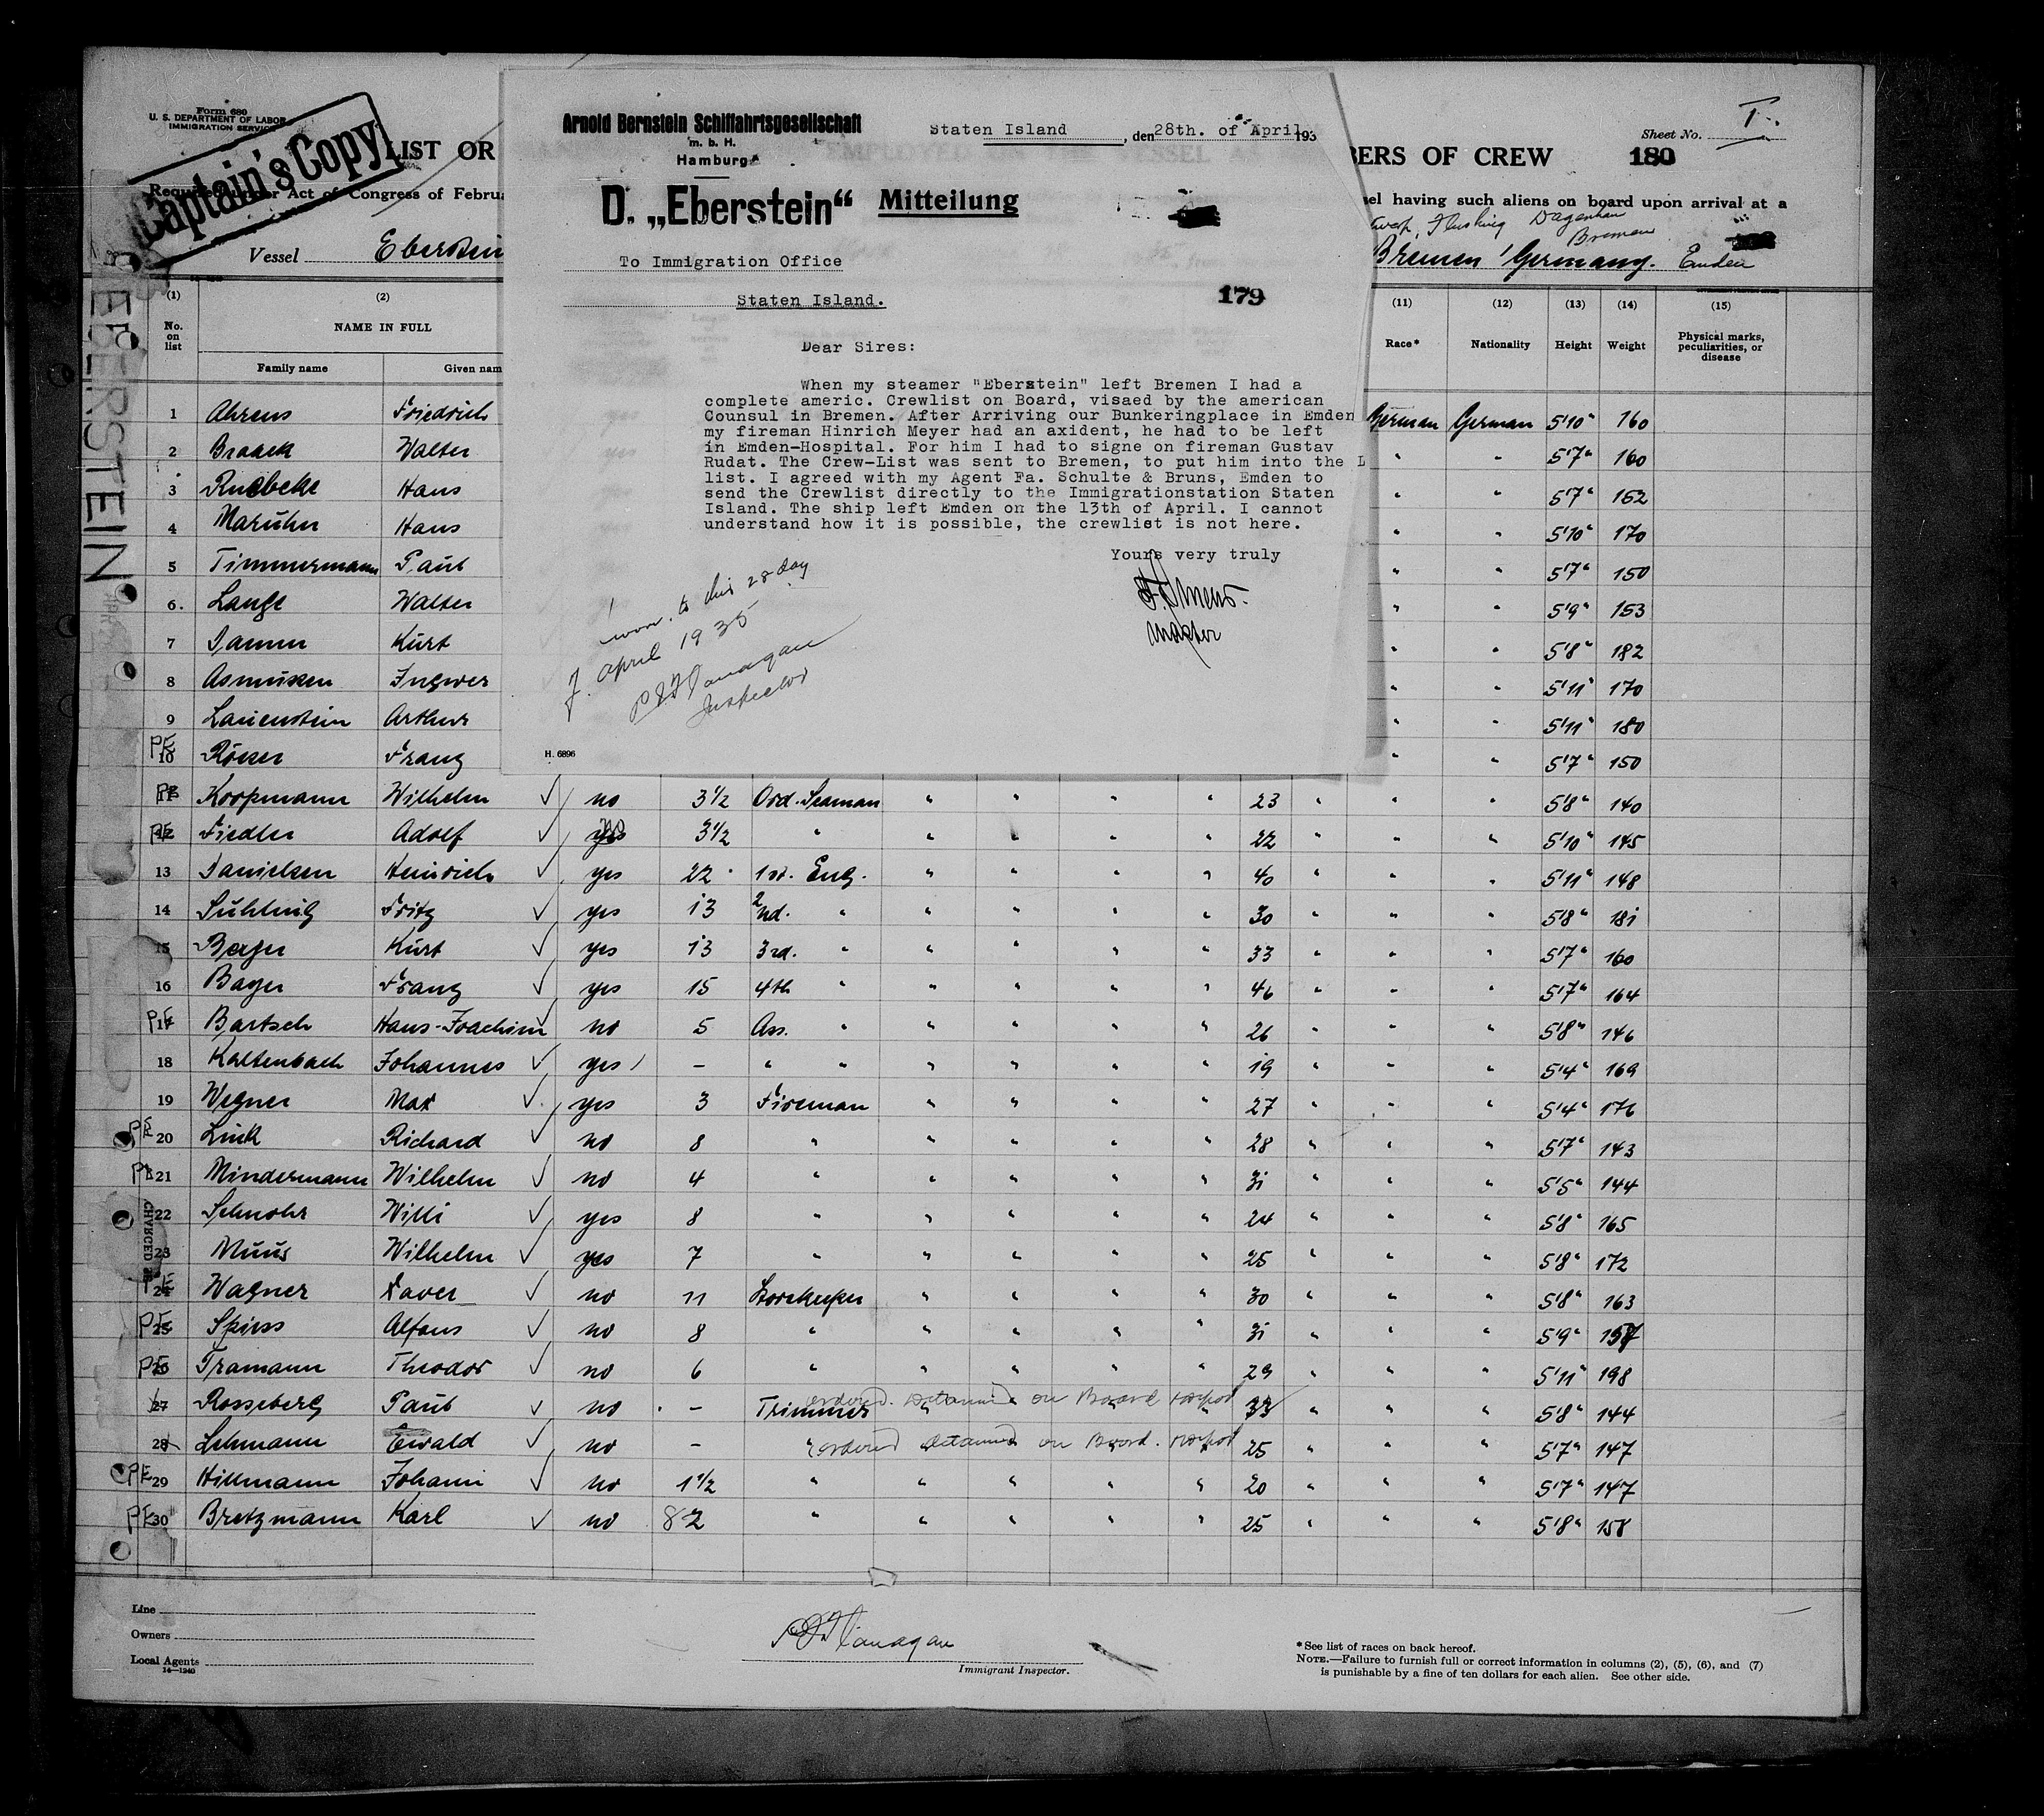 Form 680
U. S. DEPARTMENT OF LABOR
IMMIGRATION SERVICE
Captain's Copy
LIST OR
BERS OF CREW
Sheet No. I.
180
Required under Act of Congress of Februa
sel having such aliens on board upon arrival at a
Flushing Dagenham
Bremen
Vessel Eberstein
Bremen Germany. Emden
EBERSTEIN
Arnold Bernstein Schiffahrtsgesellschaft
m. b. H.
Hamburg
Staten Island, den 28th. of April 193
D. „Eberstein“ Mitteilung
To Immigration Office
Staten Island.
179
Dear Sires:
When my steamer "Eberstein" left Bremen I had a
complete americ. Crewlist on Board, visaed by the american
Counsul in Bremen. After Arriving our Bunkeringplace in Emden
my fireman Hinrich Meyer had an axident, he had to be left
in Emden-Hospital. For him I had to signe on fireman Gustav
Rudat. The Crew-List was sent to Bremen, to put him into the L
list. I agreed with my Agent Fa. Schulte & Bruns, Emden to
send the Crewlist directly to the Immigrationstation Staten
Island. The ship left Emden on the 13th of April. I cannot
understand how it is possible, the crewlist is not here.
Yours very truly
F. Ahrens.
Master
to this 28 day
of April 1935
Flanagan
Inspector
H. 6896
(1) (2) (11) (12) (13) (14) (15)
No. on list NAME IN FULL Race* Nationality Height Weight Physical marks, peculiarities, or disease
Family name Given nam
1 Ahrens Friedrich German German 5'10" 160
2 Braack Walter " " 5'7" 160
3 Hans " " 5'7" 152
4 Maruhn Hans " " 5'10" 170
5 Timmermann Paul " " 5'7" 150
6. Lange Walter " " 5'9" 153
7 Damm Kurt " " 5'8" 182
8 Asmussen Ingwer " " 5'11" 170
9 Lauenstein Arthur " " 5'11" 180
PE 10 Röser Franz " " 5'7" 150
PE 11 Koopmann Wilhelm ✓ no 3½ Ord. Seaman " " " " 23 " " " 5'8" 140
PE 12 Fiedler Adolf ✓ yes no 3½ " " " " " 22 " " " 5'10" 145
13 Danielsen Heinrich ✓ yes 22 1st. Eng. " " " " 40 " " " 5'11" 148
14 Sühling Fritz ✓ yes 13 2nd. " " " " " 30 " " " 5'8" 181
15 Beyer Kurt ✓ yes 13 3rd. " " " " " 33 " " " 5'7" 160
16 Bayer Franz ✓ yes 15 4th " " " " " 46 " " " 5'7" 164
PE 17 Bartsch Hans-Joachim ✓ no 5 Ass. " " " " " 26 " " " 5'8" 146
18 Kaltenbach Johannes ✓ yes - " " " " " " 19 " " " 5'4" 169
19 Wegner Max ✓ yes 3 Fireman " " " " 27 " " " 5'4" 176
PE 20 Link Richard ✓ no 8 " " " " " 28 " " " 5'7" 143
PE 21 Mindermann Wilhelm ✓ no 4 " " " " " 31 " " " 5'5" 144
22 Schnohr Willi ✓ yes 8 " " " " " 24 " " " 5'8" 165
23 Muus Wilhelm ✓ yes 7 " " " " " 25 " " " 5'8" 172
PE 24 Wagner Xaver ✓ no 11 Storekeeper " " " " 30 " " " 5'8" 163
PE 25 Spiess Alfons ✓ no 8 " " " " " 31 " " " 5'9" 157
PE 26 Tramann Theodor ✓ no 6 " " " " " 29 " " " 5'11" 198
27 Rosseberg Paul ✓ no - Trimmer ordered Detained on Board 33 " " " 5'8" 144
28 Lehmann Ewald ✓ no - " ordered Detained on Board. 25 " " " 5'7" 147
PE 29 Hillmann Johann ✓ no 1½ " " " " " 20 " " " 5'7" 147
PE 30 Bretzmann Karl ✓ no 82 " " " " " 25 " " " 5'8" 158
Line
Owners
Local Agents
14—1240
Flanagan
Immigrant Inspector.
*See list of races on back hereof.
NOTE.—Failure to furnish full or correct information in columns (2), (5), (6), and (7)
is punishable by a fine of ten dollars for each alien. See other side.